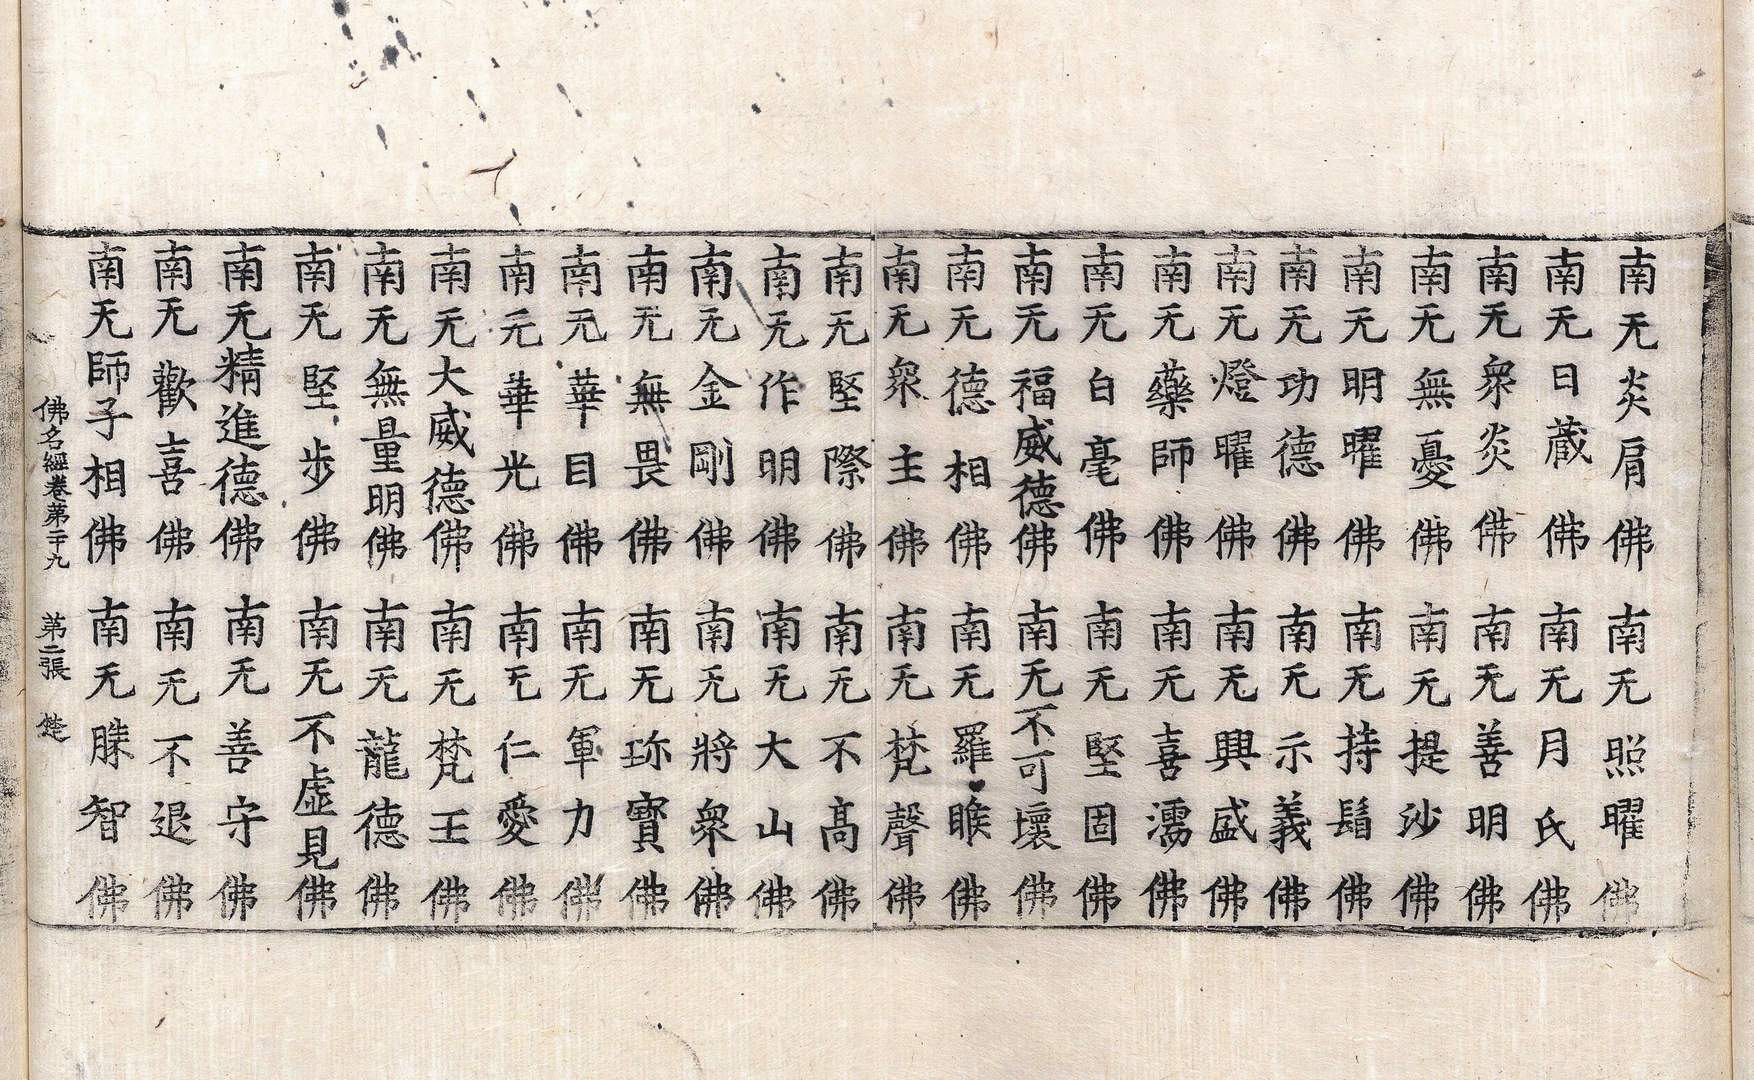 南无炎肩佛 南无照曜佛
南无日蔵佛 南无月氏佛
南无衆炎佛 南无善明佛
南无無憂佛 南无提沙佛
南无明曜佛 南无持鬘佛
南无功德佛 南无示義佛
南无燈曜佛 南无興盛佛
南无藥師佛 南无喜濡佛
南无白毫佛 南无堅固佛
南无福威德佛 南无不可壞佛
南无德相佛 南无羅睺佛
南无衆主佛 南无梵聲佛
南无堅際佛 南无不高佛
南无作明佛 南无大山佛
南无金剛佛 南无將衆佛
南无無畏佛 南无珎寶佛
南无華目佛 南无軍力佛
南无華光佛 南无仁愛佛
南无大威德佛 南无梵王佛
南无無量明佛 南无龍德佛
南无堅步佛 南无不虛見佛
南无精進德佛 南无善守佛
南无歡喜佛 南无不退佛
南无師子相佛 南无勝智佛
佛名經卷第二十九 第二張 楚